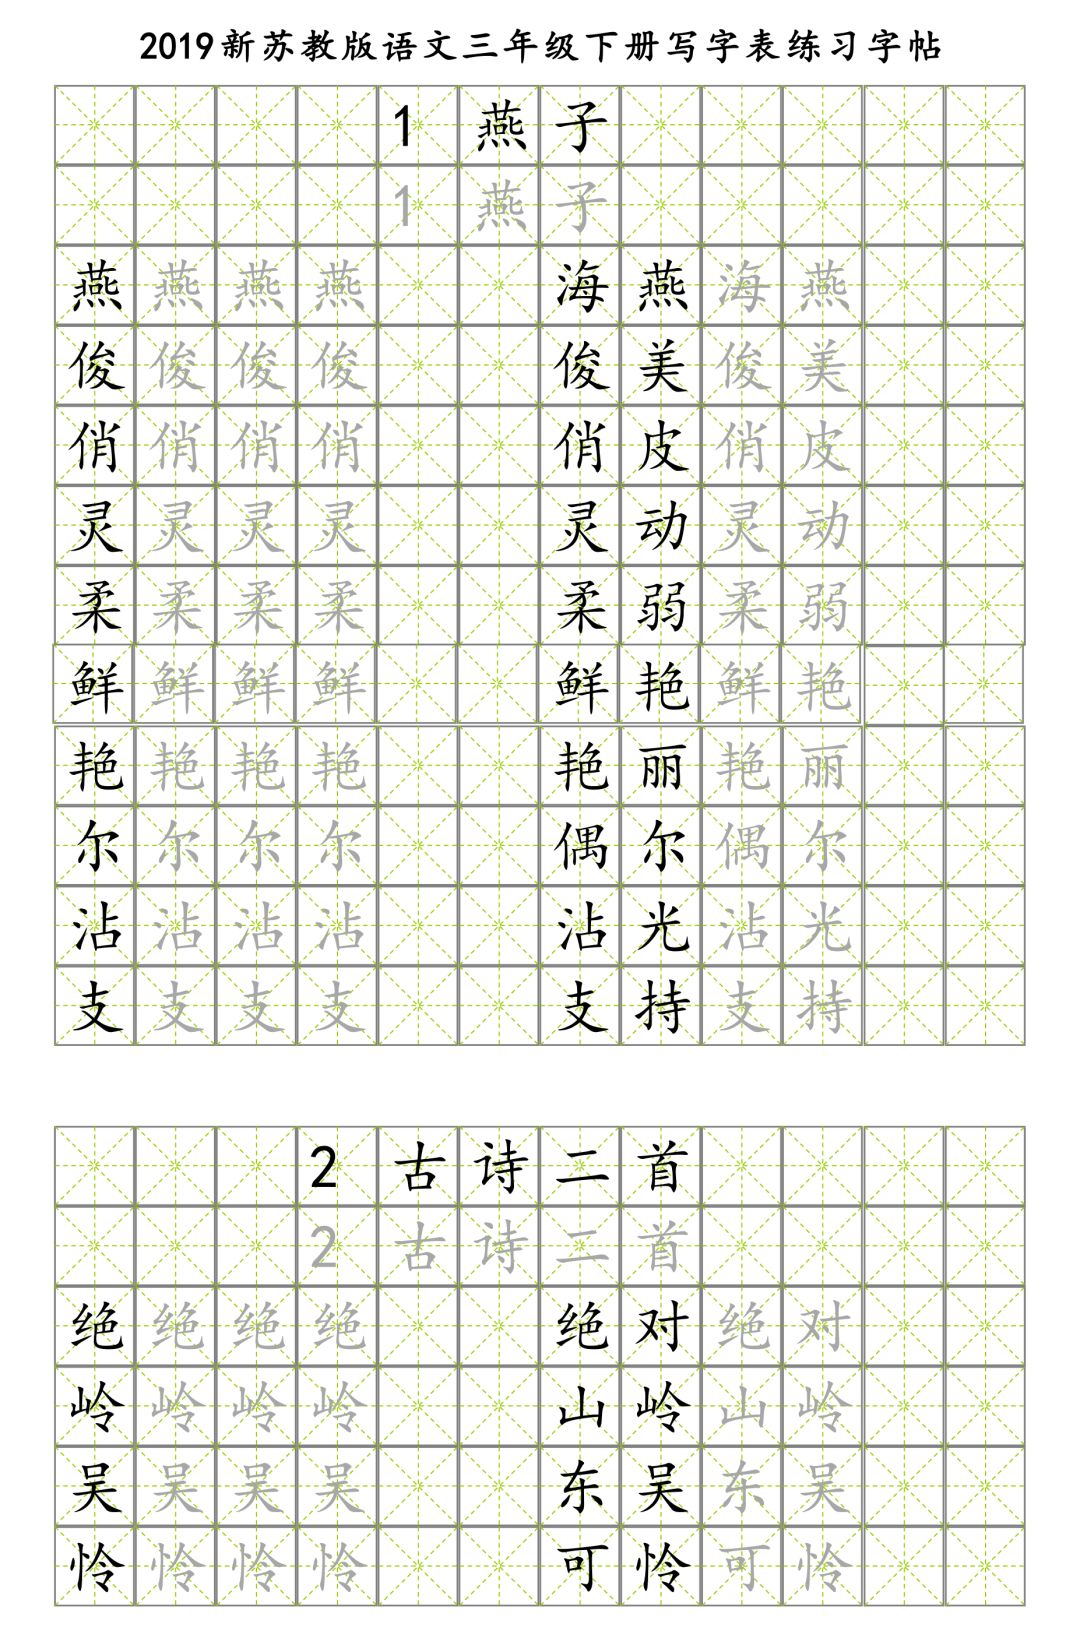 2019新苏教版语文三年级下册写字表练习字帖
1 燕子
1 燕子
燕燕燕燕 海燕海燕
俊俊俊俊 俊美俊美
俏俏俏俏 俏皮俏皮
灵灵灵灵 灵动灵动
柔柔柔柔 柔弱柔弱
鲜鲜鲜鲜 鲜艳鲜艳
艳艳艳艳 艳丽艳丽
尔尔尔尔 偶尔偶尔
沾沾沾沾 沾光沾光
支支支支 支持支持
2 古诗二首
2 古诗二首
绝绝绝绝 绝对绝对
岭岭岭岭 山岭山岭
吴吴吴吴 东吴东吴
怜怜怜怜 可怜可怜